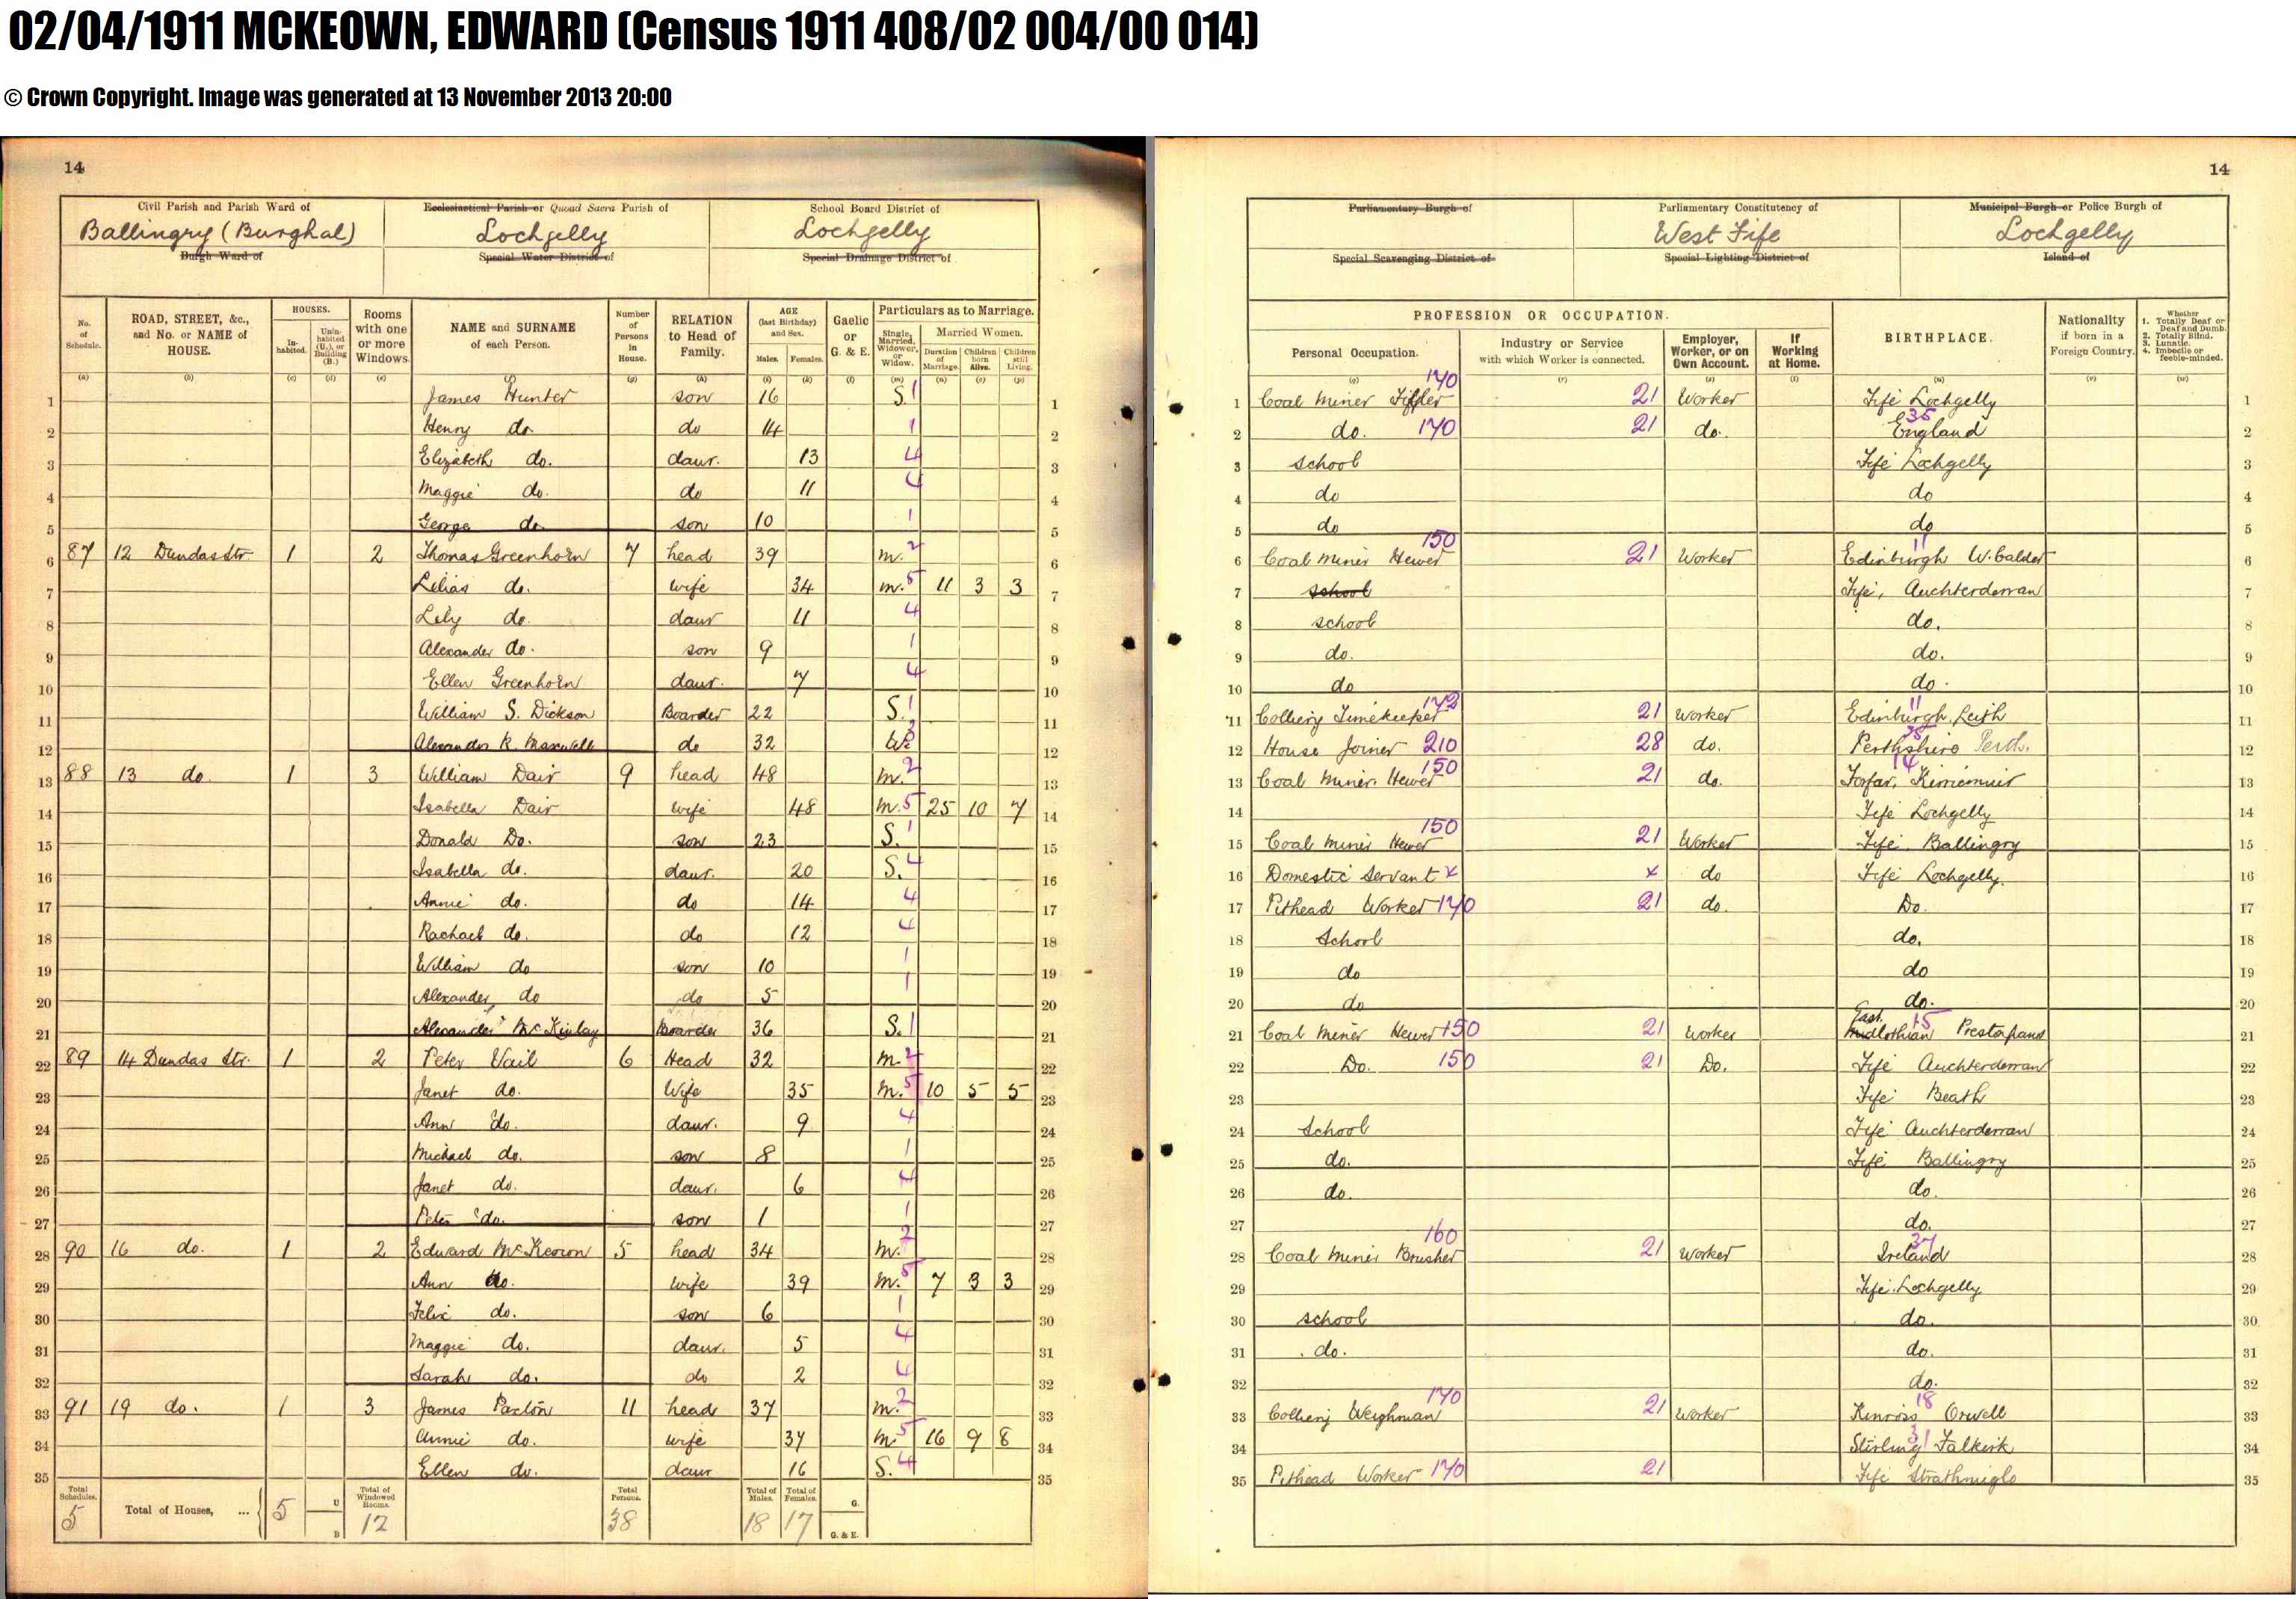 02/04/1911 MCKEOWN, EDWARD (Census 1911 408/02 004/00 014)
© Crown Copyright. Image was generated at 13 November 2013 20:00
14
Civil Parish and Parish Ward of Ecclesiastical Parish or Quoad Sacra Parish of School Board District of
Ballingry (Burghal) Lochgelly Lochgelly
Burgh Ward of Special Water District of Special Drainage District of
No. of Schedule. ROAD, STREET, &c., and No. or NAME of HOUSE. HOUSES. Inhabited. Uninhabited (U.), or Building (B.) Rooms with one or more Windows. NAME and SURNAME of each Person. Number of Persons in House. RELATION to Head of Family. AGE (last Birthday) and Sex. Males. Females. Gaelic or G. & E. Particulars as to Marriage. Single, Married, Widower, or Widow. Married Women. Duration of Marriage. Children born Alive. Children still Living.
(a) (b) (c) (d) (e) (f) (g) (h) (i) (k) (l) (m) (n) (o) (p)
1 James Hunter son 16 S. 1 1
2 Henry do. do 14 1 2
3 Elizabeth do. daur. 13 4 3
4 Maggie do. do 11 4 4
5 George do. son 10 1 5
6 87 12 Dundas Str 1 2 Thomas Greenhorn 7 head 39 m. 2 6
7 Lilias do. wife 34 m. 5 11 3 3 7
8 Lily do. daur 11 4 8
9 Alexander do. son 9 1 9
10 Ellen Greenhorn daur. 7 4 10
11 William S. Dickson Boarder 22 S. 1 11
12 Alexander R. Maxwell do 32 W. 12
13 88 13 do. 1 3 William Dair 9 head 48 m. 2 13
14 Isabella Dair wife 48 m. 5 25 10 7 14
15 Donald Do. son 23 S. 1 15
16 Isabella do. daur. 20 S. 4 16
17 Annie do. do 14 4 17
18 Rachael do. do 12 4 18
19 William do son 10 1 19
20 Alexander do do 5 1 20
21 Alexander McKinlay Boarder 36 S. 1 21
22 89 14 Dundas Str. 1 2 Peter Vail 6 Head 32 m. 2 22
23 Janet do. Wife 35 m. 5 10 5 5 23
24 Ann do. daur. 9 4 24
25 Michael do. son 8 1 25
26 Janet do. daur. 6 4 26
27 Peter do. son 1 1 27
28 90 16 do. 1 2 Edward McKeown 5 head 34 m. 2 28
29 Ann do. wife 39 m. 5 7 3 3 29
30 Felix do. son 6 1 30
31 Maggie do. daur. 5 4 31
32 Sarah do. do 2 4 32
33 91 19 do. 1 3 James Paxton 11 head 37 m. 2 33
34 Annie do. wife 37 m 5 16 9 8 34
35 Ellen do. daur 16 S. 4 35
Total Schedules. 5 Total of Houses, ... 5 U B Total of Windowed Rooms. 12 Total Persons. 38 Total of Males. 18 Total of Females. 17 G. G. & E.
14
Parliamentary Burgh of Parliamentary Constituency of Municipal Burgh or Police Burgh of
West Fife Lochgelly
Special Scavenging District of Special Lighting District of Island of
PROFESSION OR OCCUPATION. BIRTHPLACE. Nationality if born in a Foreign Country. Whether 1. Totally Deaf or Deaf and Dumb. 2. Totally Blind. 3. Lunatic. 4. Imbecile or feeble-minded.
Personal Occupation. Industry or Service with which Worker is connected. Employer, Worker, or on Own Account. If Working at Home.
(q) (r) (s) (t) (u) (v) (w)
1 Coal Miner 170 21 Worker Fife Lochgelly 1
2 do. 170 21 do. England 35 2
3 school Fife Lochgelly 3
4 do do 4
5 do do 5
6 Coal Miner Hewer 150 21 Worker Edinburgh W. Calder 11 6
7 school Fife, Auchterderran 7
8 school do. 8
9 do. do. 9
10 do do. 10
11 Colliery Timekeeper 172 21 Worker Edinburgh, Leith 11 11
12 House Joiner 210 28 do. Perthshire Perth. 12
13 Coal Miner Hewer 150 21 do. Forfar, Kirriemuir 14 13
14 Fife Lochgelly 14
15 Coal Miner Hewer 150 21 Worker Fife Ballingry 15
16 Domestic Servant x x do Fife Lochgelly. 16
17 Pithead Worker 170 21 do. Do. 17
18 School do. 18
19 do do 19
20 do do. 20
21 Coal Miner Hewer 150 21 Worker East Midlothian Prestonpans 15 21
22 Do. 150 21 Do. Fife Auchterderran 22
23 Fife Beath 23
24 School Fife Auchterderran 24
25 do. Fife Ballingry 25
26 do. do. 26
27 do. 27
28 Coal Miner Brusher 160 21 Worker Ireland 37 28
29 Fife. Lochgelly 29
30 school do. 30
31 do. do. 31
32 do. 32
33 Colliery Weighman 170 21 Worker Kinross Orwell 18 33
34 Stirling Falkirk 31 34
35 Pithead Worker 170 21 Fife Strathmiglo 35